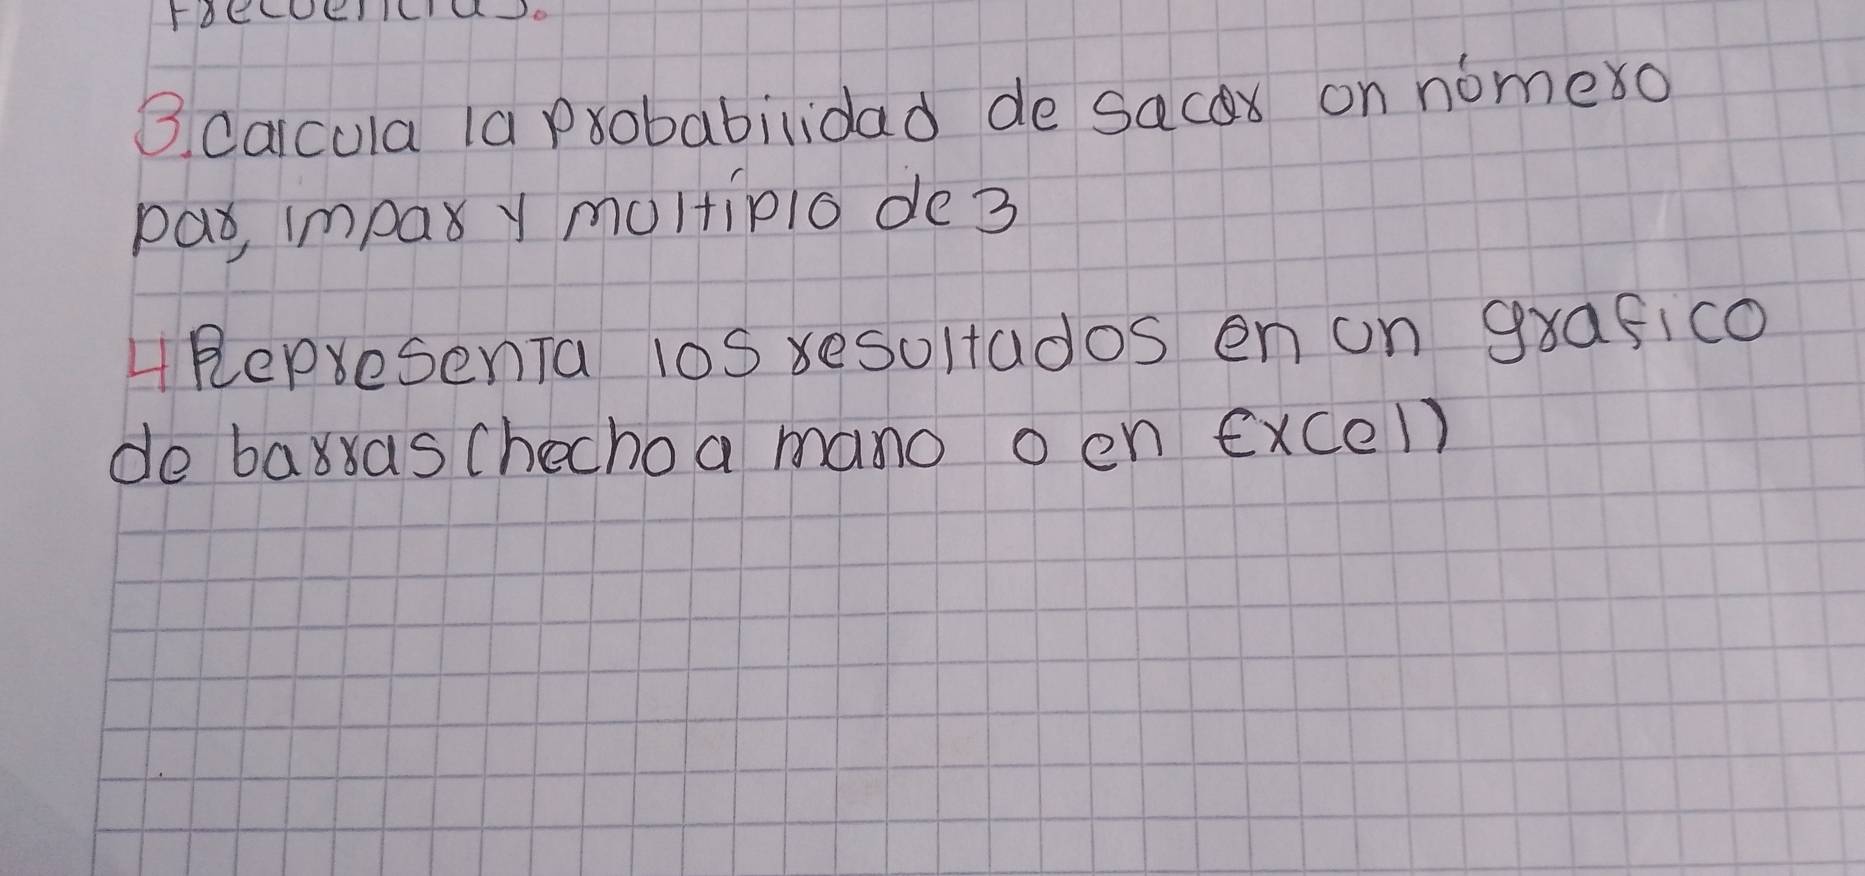 frecuencias.
3. Calcula la probabilidad de sacar un número
par, impar y múltiplo de 3
4 Representa los resultados en un grafico
de barras (hecho a mano o en Excel)